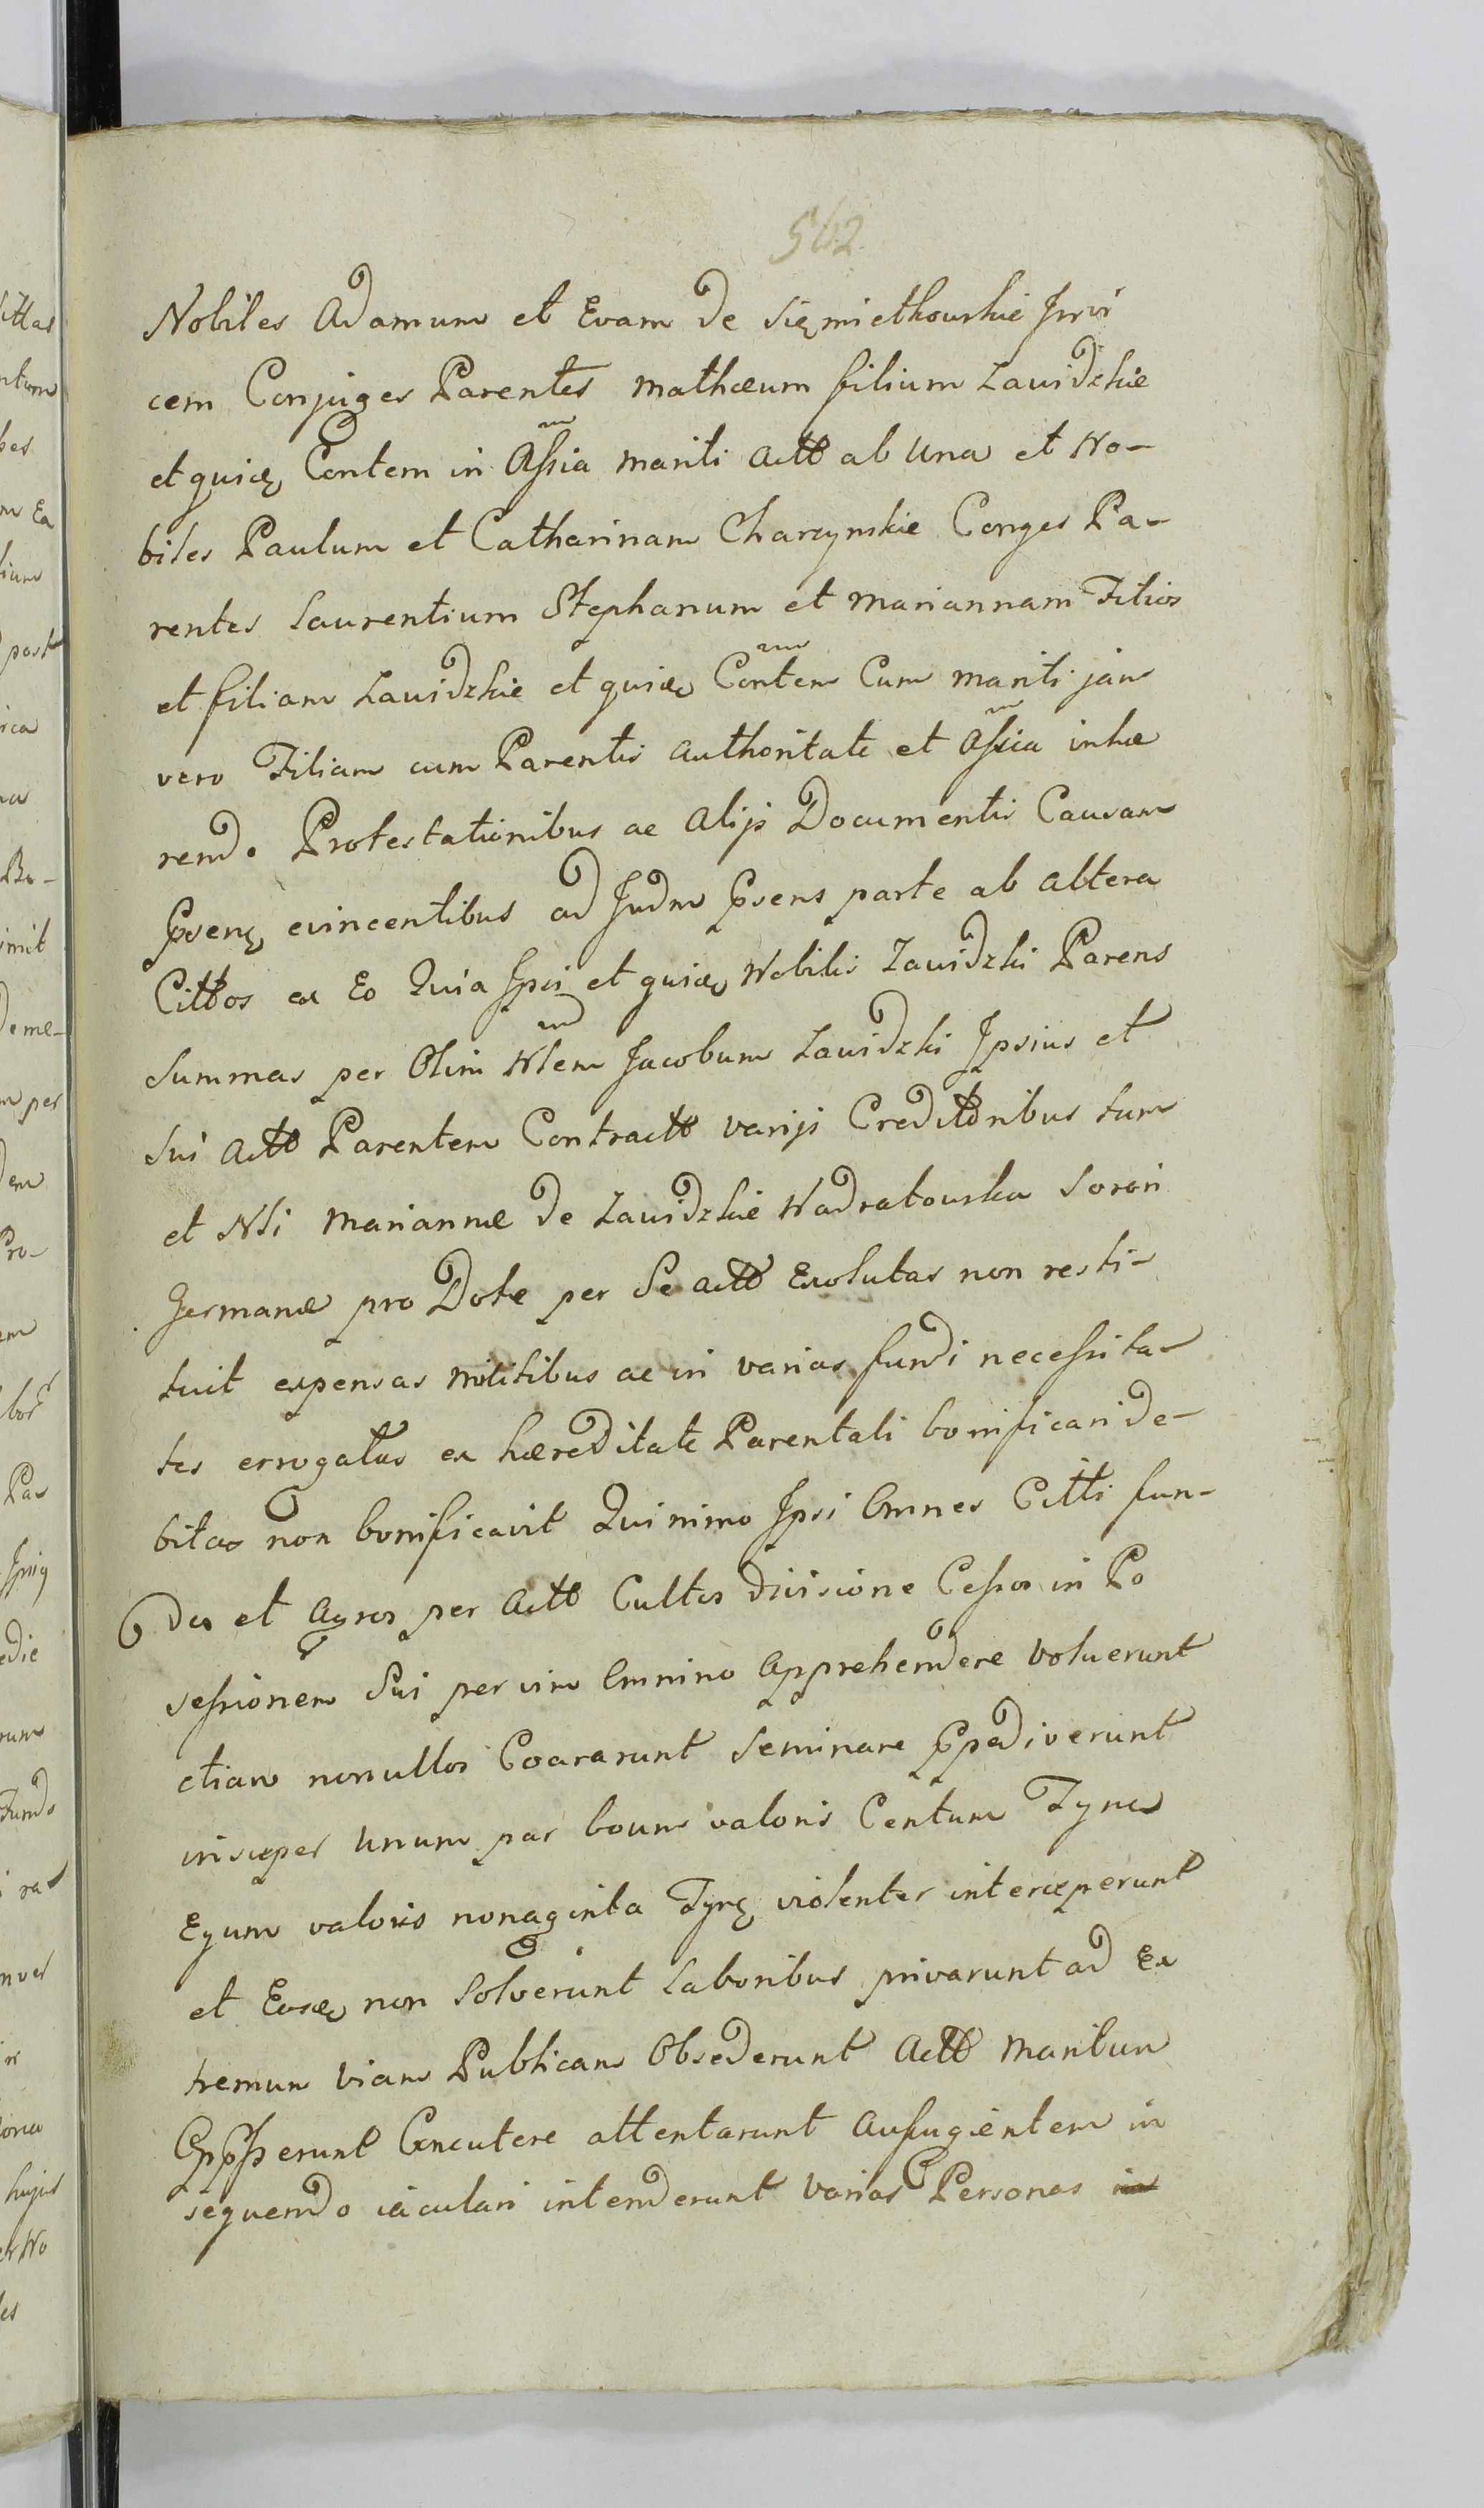 562
Nobiles Adamum et Evam de Sięmiethowskie Invi
cem Conjuges Parentes Mathæum filium Zawidzkie
et quidẽ Contem in Assia mariti Actt ab Una et No-
biles Paulum et Catharinam Charzynskie Conges Pa-
rentes Laurentium Stephanum et Mariannam Filios
et filiam Zawidzkie et quidẽ Contem Cum mariti jam
vero Filiam cum Parentis Authoritate et Assia inhæ
rendo Protestationibus ac Alijs Documentis Causam
evincentibus ad Judm Psens parte ab altera
Cittos ex Eo Quia Ipsi et Nobilis Zawidzki Parens
Summas per Olim Nlem Jacobum Zawidzki Ipsius et
Sui Actt Parentem Contractt varijs Credittoribus tum
et Nli Mariannæ de Zawidzkie Wadratowska Sorori
Germanæ pro Dote per Se Actt Exolutas non resti-
tuit expensas militibus ac in varias fundi necessita
tes errogatas ex hæreditate Parentali bonificari de-
bitas non bonificavit Quinimo Ipsi Omnes Citti fun-
dos et Agros per Actt Cultos divisione Cessos in Po
sessionem Sui per vim Omnino Apprehendere voluerunt
etiam nonullos Coararunt Seminare Ppediverunt
insuper Unum par boum valoris Centum Tynes
Equm valoris nonaginta Tynf violenter interceperunt
et non Solverunt Laboribus privarunt ad Ex
tremum viam Publicam Obsederunt Actt Maritum
erunt Concutere attentarunt Aufugientem in
sequendo iaculari intenderunt varias Personas in